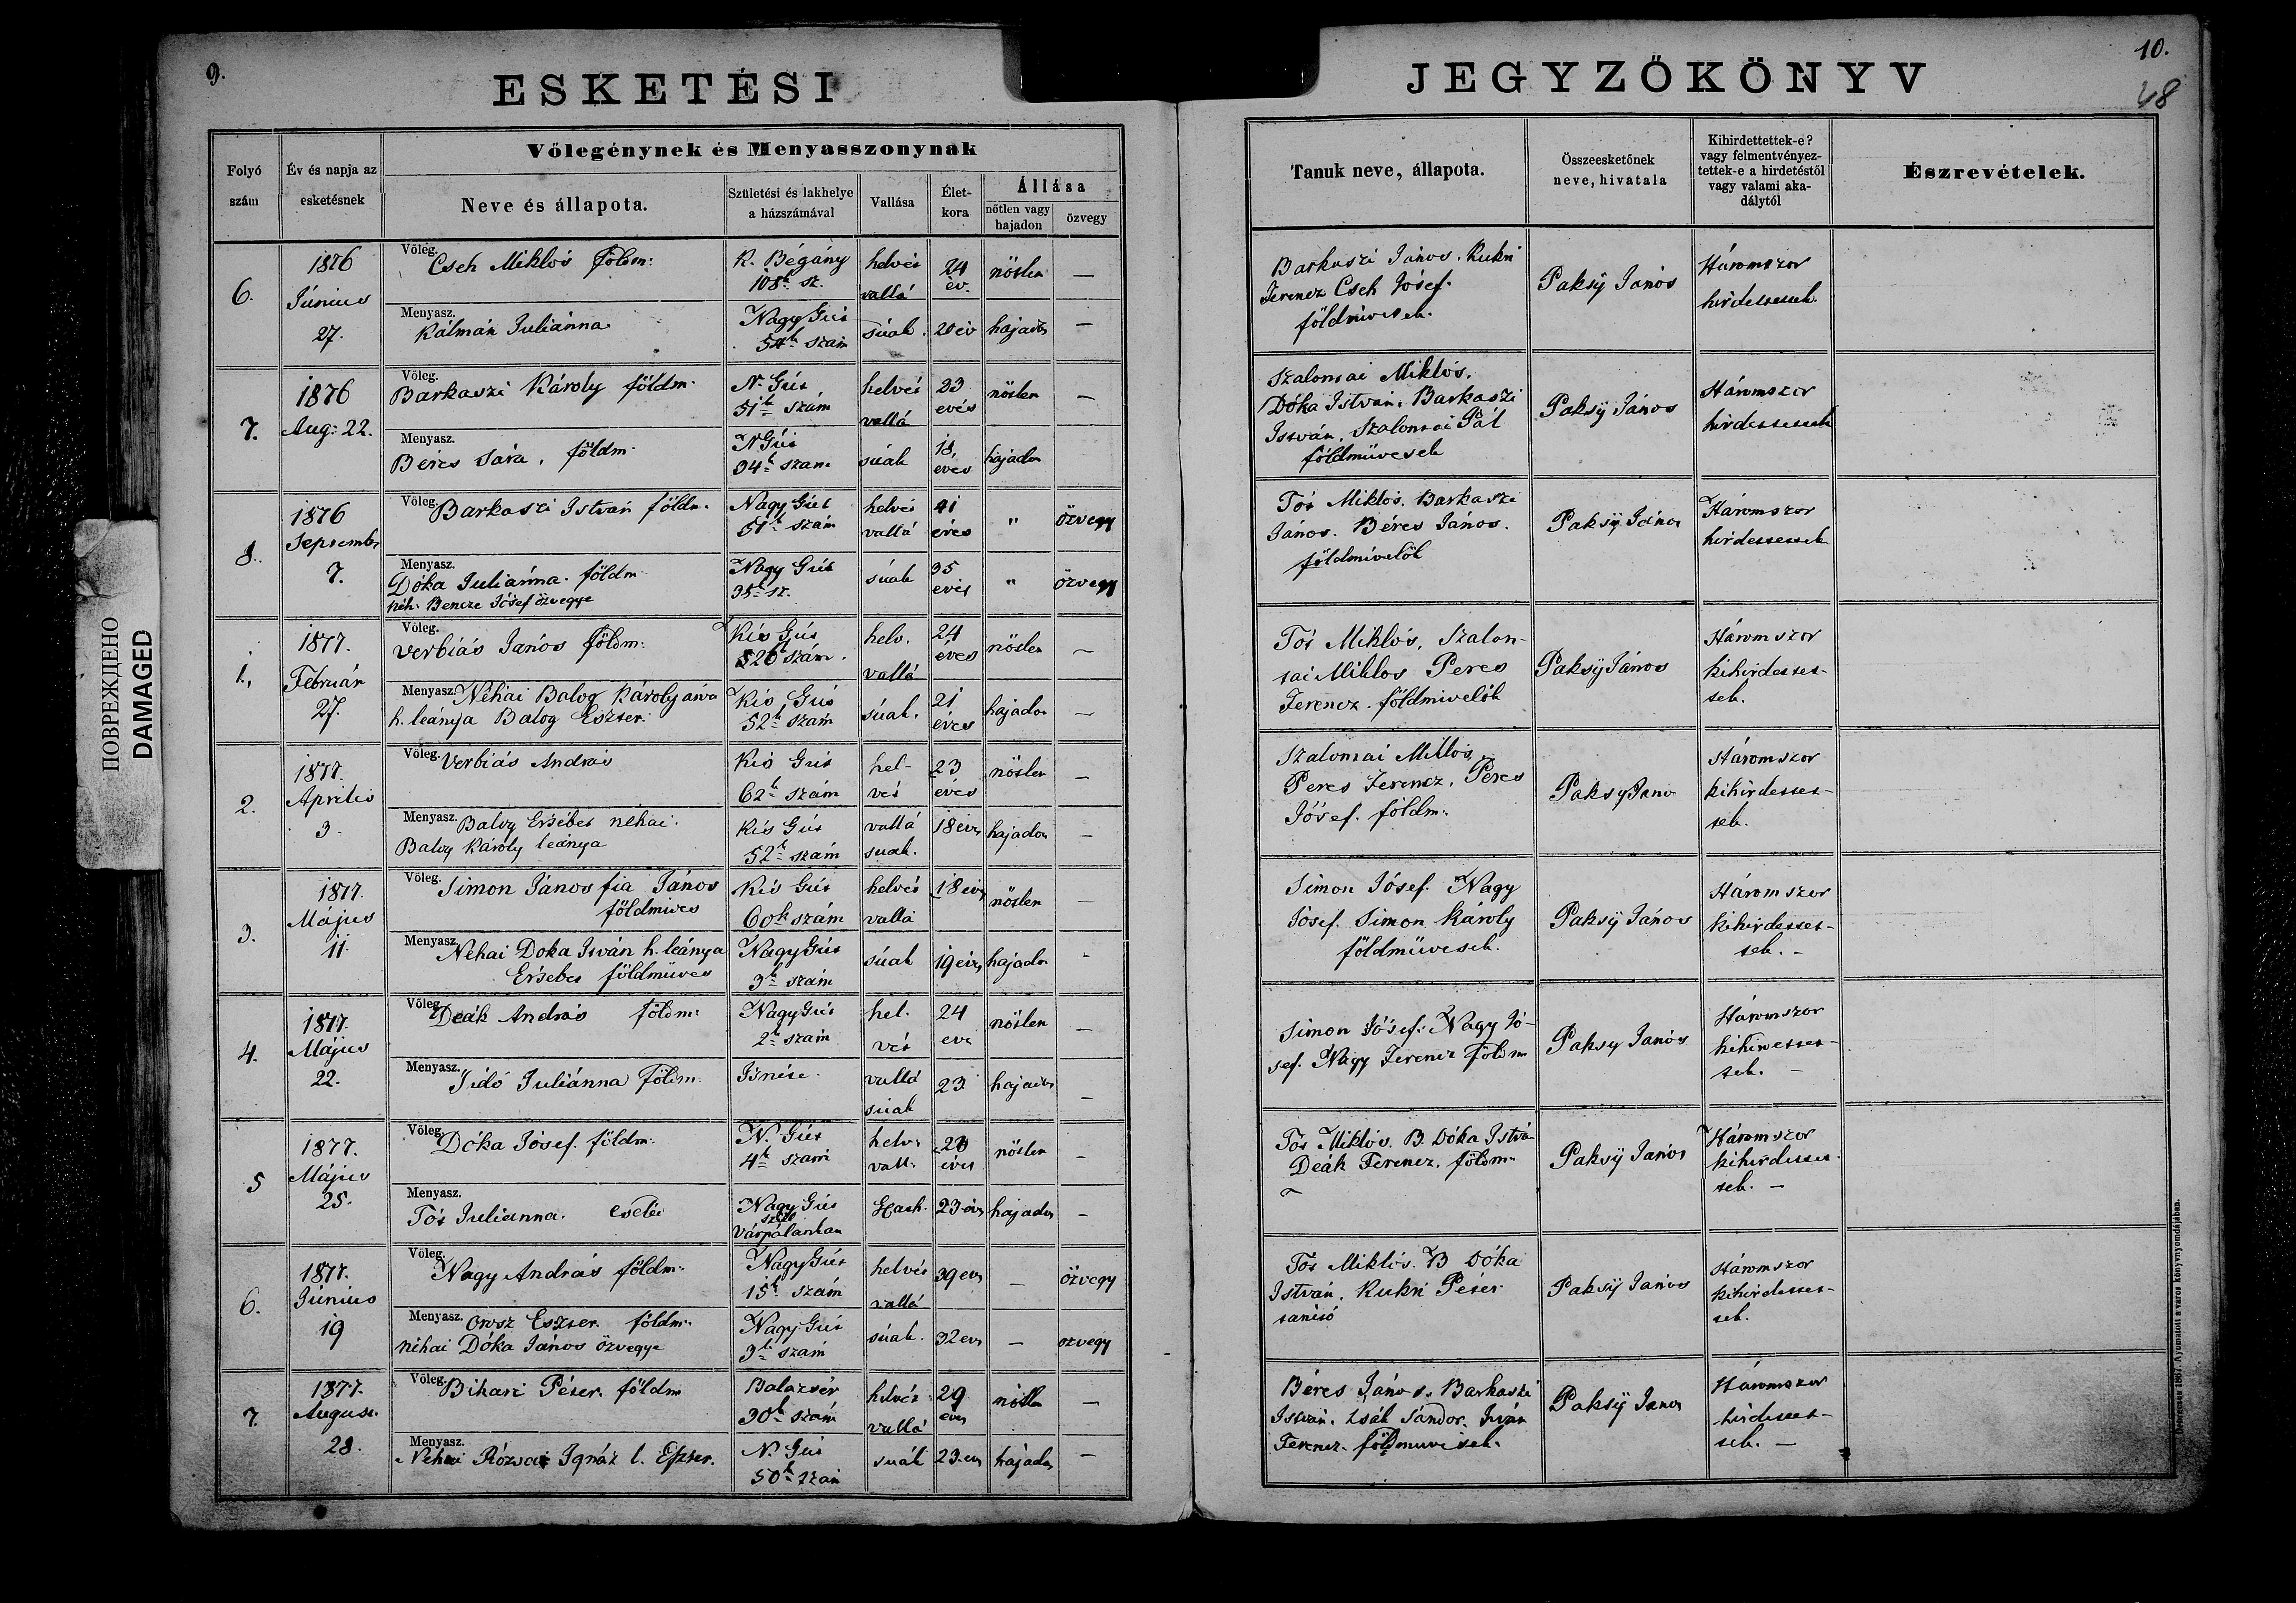 9.
ESKETÉSI
Folyó szám
Év és napja az esketésnek
Vőlegénynek és Menyasszonynak
Neve és állapota.
Születési és lakhelye a házszámával
Vallása
Élet-kora
Állása
nőtlen vagy hajadon
özvegy
6.
1876 Június 27.
Vőleg. Cseh Miklós földm:
K. Bégány 108k sz.
helvét vallá
24 év.
nőtlen
—
Menyasz. Kálmán Juliánna
Nagy Gút 54k szám
súak.
20 év
hajadon
—
7.
1876 Aug: 22.
Vőleg. Barkaszi Károly földm.
N. Gút 51k szám
helvét vallá
23 evés
nőtlen
—
Menyasz. Béres Sára, földm.
N Gút 94k szam
súak
18, eves
hajadon
8.
1876 September 7.
Vőleg. Barkaszi István földm.
Nagy Gút 51k szám
helvét vallá
41 éves
"
özvegy
Menyasz. Dóka Juliánna. földm
néh. Bencze Jósef özvegye
Nagy Gút 35k sz.
súak
35 evés
"
özvegy
1.,
1877. Február 27.
Vőleg. Verbiás János földm:
Kis Gút 526 szám.
helv. vallá
24 éves
nőtlen
—
Menyasz. Néhai Balog Károly árva
h. leánya Balog Eszter.
Kis Gút 52k szám
súak.
21 éves
hajadon
—
2.
1877. Aprilis 3.
Vőleg. Verbiás András
Kis Gút 62k szám
hel-vét
23 éves
nőtlen
—
Menyasz. Balog Ersébet néhai.
Balog Károly leánya
Kis Gút 52k szám
vallá suak.
18 éves
hajadon
—
3.
1877. Május 11.
Vőleg. Simon János fia János
földmíves
Kis Gút 60k szám
helvét vallá
18 éves
nőtlen
—
Menyasz. Néhai Doka István h. leánya
Ersébet földmüves
Nagy Gút 3k szám
súak
19 éves
hajadon
-
4.
1877. Május 22.
Vőleg. Deák András földm:
Nagy Gút 2k szám
hel. vét
24 eve
nőtlen
—
Menyasz. Sidó Juliánna földm.
vallá súak
23
hajadon
—
5
1877. Május 25.
Vőleg. Dóka Jósef. földm:
N. Gút 4k szám
helv. vall.
éves
nőtlen
—
Menyasz. Tót Julianna. Cseléd
Nagy Gút
Várpalankan
23 éves
hajadon
—
6.
1877. Június 19
Vőleg. Nagy András földm.
Nagy Gút 15k szám
helvét vallá
39 eves
—
özvegy
Menyasz. Orosz Eszter földm.
néhai Dóka János özvegye
Nagy Gút 3k szam
súak.
32 eves
—
ozvegy
7.
1877. August. 28.
Vőleg. Bihari Péter földm
Balazsér 30k szám
helvét vallá
29 eves
nőtlen
—
Menyasz. Néhai Rózsai Ignáz l. Eszter.
N. Gút 50k szám
suák
23 eves
hajadon
—
10.
48
JEGYZŐKÖNYV
Tanuk neve, állapota.
Összeesketőnek neve, hivatala
Kihirdettettek-e?
vagy felmentvényez-
tettek-e a hirdetéstől
vagy valami aka-
dálytól
Észrevételek.
Barkaszi János. Kukri
Ferencz Cseh Jósef.
földmivesek.
Paksÿ János
Háromszor
hirdettettek
Szalontai Miklós.
Dóka István. Barkaszi
István. Szalontai Pál
földmüvesek
Paksÿ János
Háromszor
hirdettettek
Tót Miklós. Barkaszi
János. Béres János.
földmívelők
Paksÿ János
Háromszor
hirdettettek
Tót Miklós, Szalon-
tai Miklos Peres
Ferencz. földmivelők
Paksÿ János
Háromszor
kihirdettet-
tek.
Szalontai Miklos
Peres Ferencz, Peres
Jósef. földm.
Paksy Jano
Háromszor
kihirdettet-
tek.
Simon Jósef. Nagy
Jósef. Simon Károly
földmüvesek.
Paksÿ János
Háromszor
kihirdettet-
tek. -
Simon Jósef. Nagy Jó-
sef. Nagy Ferencz földm
Paksy János
Háromszor
tek. —
Tót Miklós. B. Dóka Istvá-
Deák Ferencz. földm-
Paksÿ János
Háromszor
kihirdettet
tek. —
Tót Miklós. B Dóka
István, Kukri Péter
tanító
Paksÿ János
Háromszor
kihirdettet-
tek.
Béres János. Barkaszi
István. Zsák Sándor. Iván
Ferencz. földmuvesek.
Paksÿ Janos
Háromszor
hirdettet-
tek. —
ПОВРЕЖДЕНО
DAMAGED
Debreczen 1867. Nyomatott a város könyvnyomdájában.